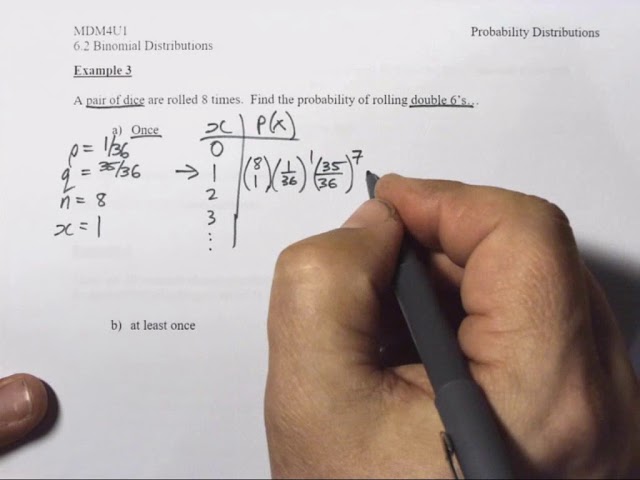 MDM4U1 Probability Distributions
6.2 Binomial Distributions
Example 3
A pair of dice are rolled 8 times. Find the probability of rolling double 6's...
a) Once
p = 1/36
q = 35/36
n = 8
x = 1
x P(x)
0
→ 1 (8 1)(1/36)^1(35/36)^7
2
3
⋮
b) at least once